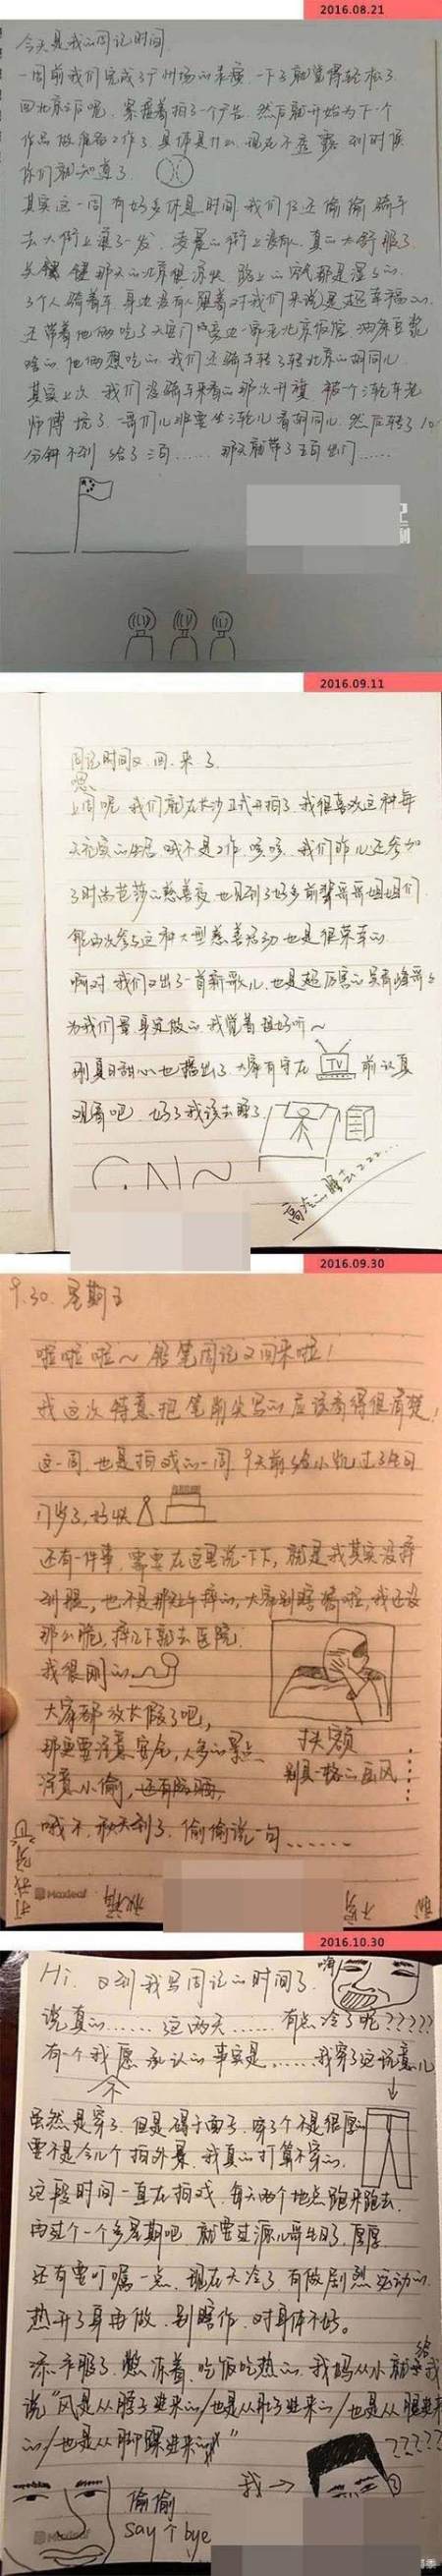 2016.08.21
今天是我的周记时间
一周前我们完成了广州场的录废 一下子就觉得轻松了
回北京之后呢 紧接着拍了一个广告 然后就开始为下一个
作品做准备工作了 具体是什么 现在不透露 到时候
你们就知道了
其实这一周有好多休息时间 我们仨还偷偷骑车
去大街上浪了一发 凌晨的街上没有人 真的太舒服了
关键 那天的北京很凉快 路上的空气都是湿的
3个人骑着车 身边没有人跟着对我们来说是超幸福的
还带着他俩吃了天安门旁边一家老北京饭店 油条豆浆
啥的 他俩想吃的 我们还骑车转了转北京的胡同儿
其实上次 我们没骑车来看的那次升旗 被个三轮车老
师傅坑了 哥们儿非要坐三轮儿看胡同儿 然后转了10
分钟不到 给了三百…… 那天就带了五百出门……
2016.09.11
周记时间又.回.来了
嗯
上周呢 我们就在长沙正式开拍了 我很喜欢这种每
天充实的生活 哦不是工作 咳咳 我们昨儿还参加
了时尚芭莎的慈善夜 也见到了好多前辈哥哥姐姐们
能再次参与这种大型慈善活动也是很荣幸的
啊对 我们又出了一首新歌儿 也是超厉害的吴青峰哥哥
为我们量身定做的 我觉着挺好听~
刚夏日甜心也播出了 大家有守在 TV 前认真
观看吧 好了我该去睡了
高冷的睡去zzz...
2016.09.30
9.30. 星期五
啦啦啦~ 铅笔周记又回来啦!
我这次特意把笔削尖写的 应该看得很清楚!
这一周 也是拍戏的一周 9天前给小凯过了生日
17岁了,好快
还有一件事 需要在这里说一下下, 就是我其实没摔
到腿, 也不是那天下午摔的, 大家别瞎猜啦, 我还没
那么脆, 摔一下就去医院.
我很刚的
大家都放长假了吧,
那更要注意安全, 人多的景点
注意小偷, 还有防晒,
扶额
别具一格的画风
哦不 秋天到了. 偷偷说一句……
Maxleaf
2016.10.30
Hi. 又到我写周记的时间了
嗨
说真的…… 这两天…… 有点冷了呢?????
有一个我不愿承认的事实是…… 我穿了这玩意儿
虽然是穿了 但是碍于面子 穿了个不是很厚的
要不是今儿个拍外景 我真的打算不穿的
这段时间一直在拍戏 每天两个地点跑来跑去
再过个一个多星期吧 就要过源儿哥生日了, 厚厚
还有要叮嘱一点 现在天冷了 有做剧烈运动的
热开了身再做 别瞎作 对身体不好。
添衣服了 憋冻着 吃饭吃热的 我妈从小就给我
说“风是从脖子进来的/也是从肚子进来的/也是从腿进来
的/也是从脚踝进来的”
?????
我→
偷偷
say个bye
Maxleaf